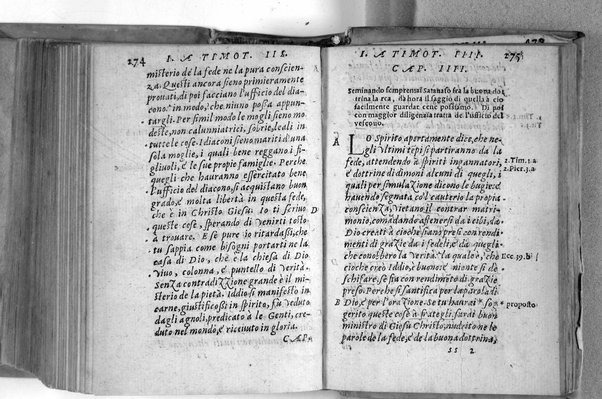 274 I. A TIMOT. III.
misterio de la fede ne la pura conscien-
za. Questi ancora sieno primieramente
prouati, di poi facciano l'ufficio del dia-
cono: in modo, che niuno possa appun-
targli. Per simil modo le mogli sieno mo
deste, non calunniatrici, sobrie, leali in
tutte le cose. I diaconi sieno mariti d'una
sola moglie, i quali bene reggano i fi-
gliuoli, e le sue propie famiglie. Perche
quegli che hauranno essercitato bene
l'ufficio del diacono, si acquistano buon
grado, e molta liberta in questa fede,
che è in Christo Giesù. Io ti scriuo
queste cose, sperando di venirti tosto
à trouare. E se pure io ritardassi, che
tu sappia come bisogni portarti ne la
casa di Dio, che è la chiesa di Dio
viuo, colonna, e puntello di verità.
Senza contradittione grande è il mi-
sterio de la pietà. Iddio si manifestò in
carne, giustificossi in spirito, fu veduto
da gli agnoli, predicato à le Genti, cre-
duto nel mondo, e riceuuto in gloria.
CAP.
D
I. A TIMOT. IIII. 275
CAP. IIII.
Seminando sempremai Satanasso fra la buona do
trina la rea, dà hora il saggio di quella à ciò
facilmente guardar cene possiamo. Di poi
con maggior diligenzia tratta de l'ufficio del
vescouo.
A
LO Spirito apertamente dice, che ne
gli vltimi tempi si partiranno da la
fede, attendendo à spiriti ingannatori, 2. Tim. 3. a
e dottrine di dimoni alcuni di quegli, i 2. Pier. 3. a
quali per simulazione dicono le bugie: e
hauendo segnata col cauterio la propia
conscienza, vietano il contrar matri-
monio, comandādo astenersi da i cibi, da
Dio creati à cioche siano presi con rendi
menti di grazie da i fedeli, e da quegli
che conoscono la verità. la quale è, che Ecc. 39. b
cioche creò Iddio, è buono: e niente si de
schifare, se sia con rendimento di grazie
preso. Perche si santifica per la parola di
B Dio, e per l'orazione. Se tu haurai * sog * proposto
gerito queste cose à frategli, sarai buon
ministro di Giesù Christo, nudrito ne le
parole de la fede, e de la buona dottrina,
SS 2